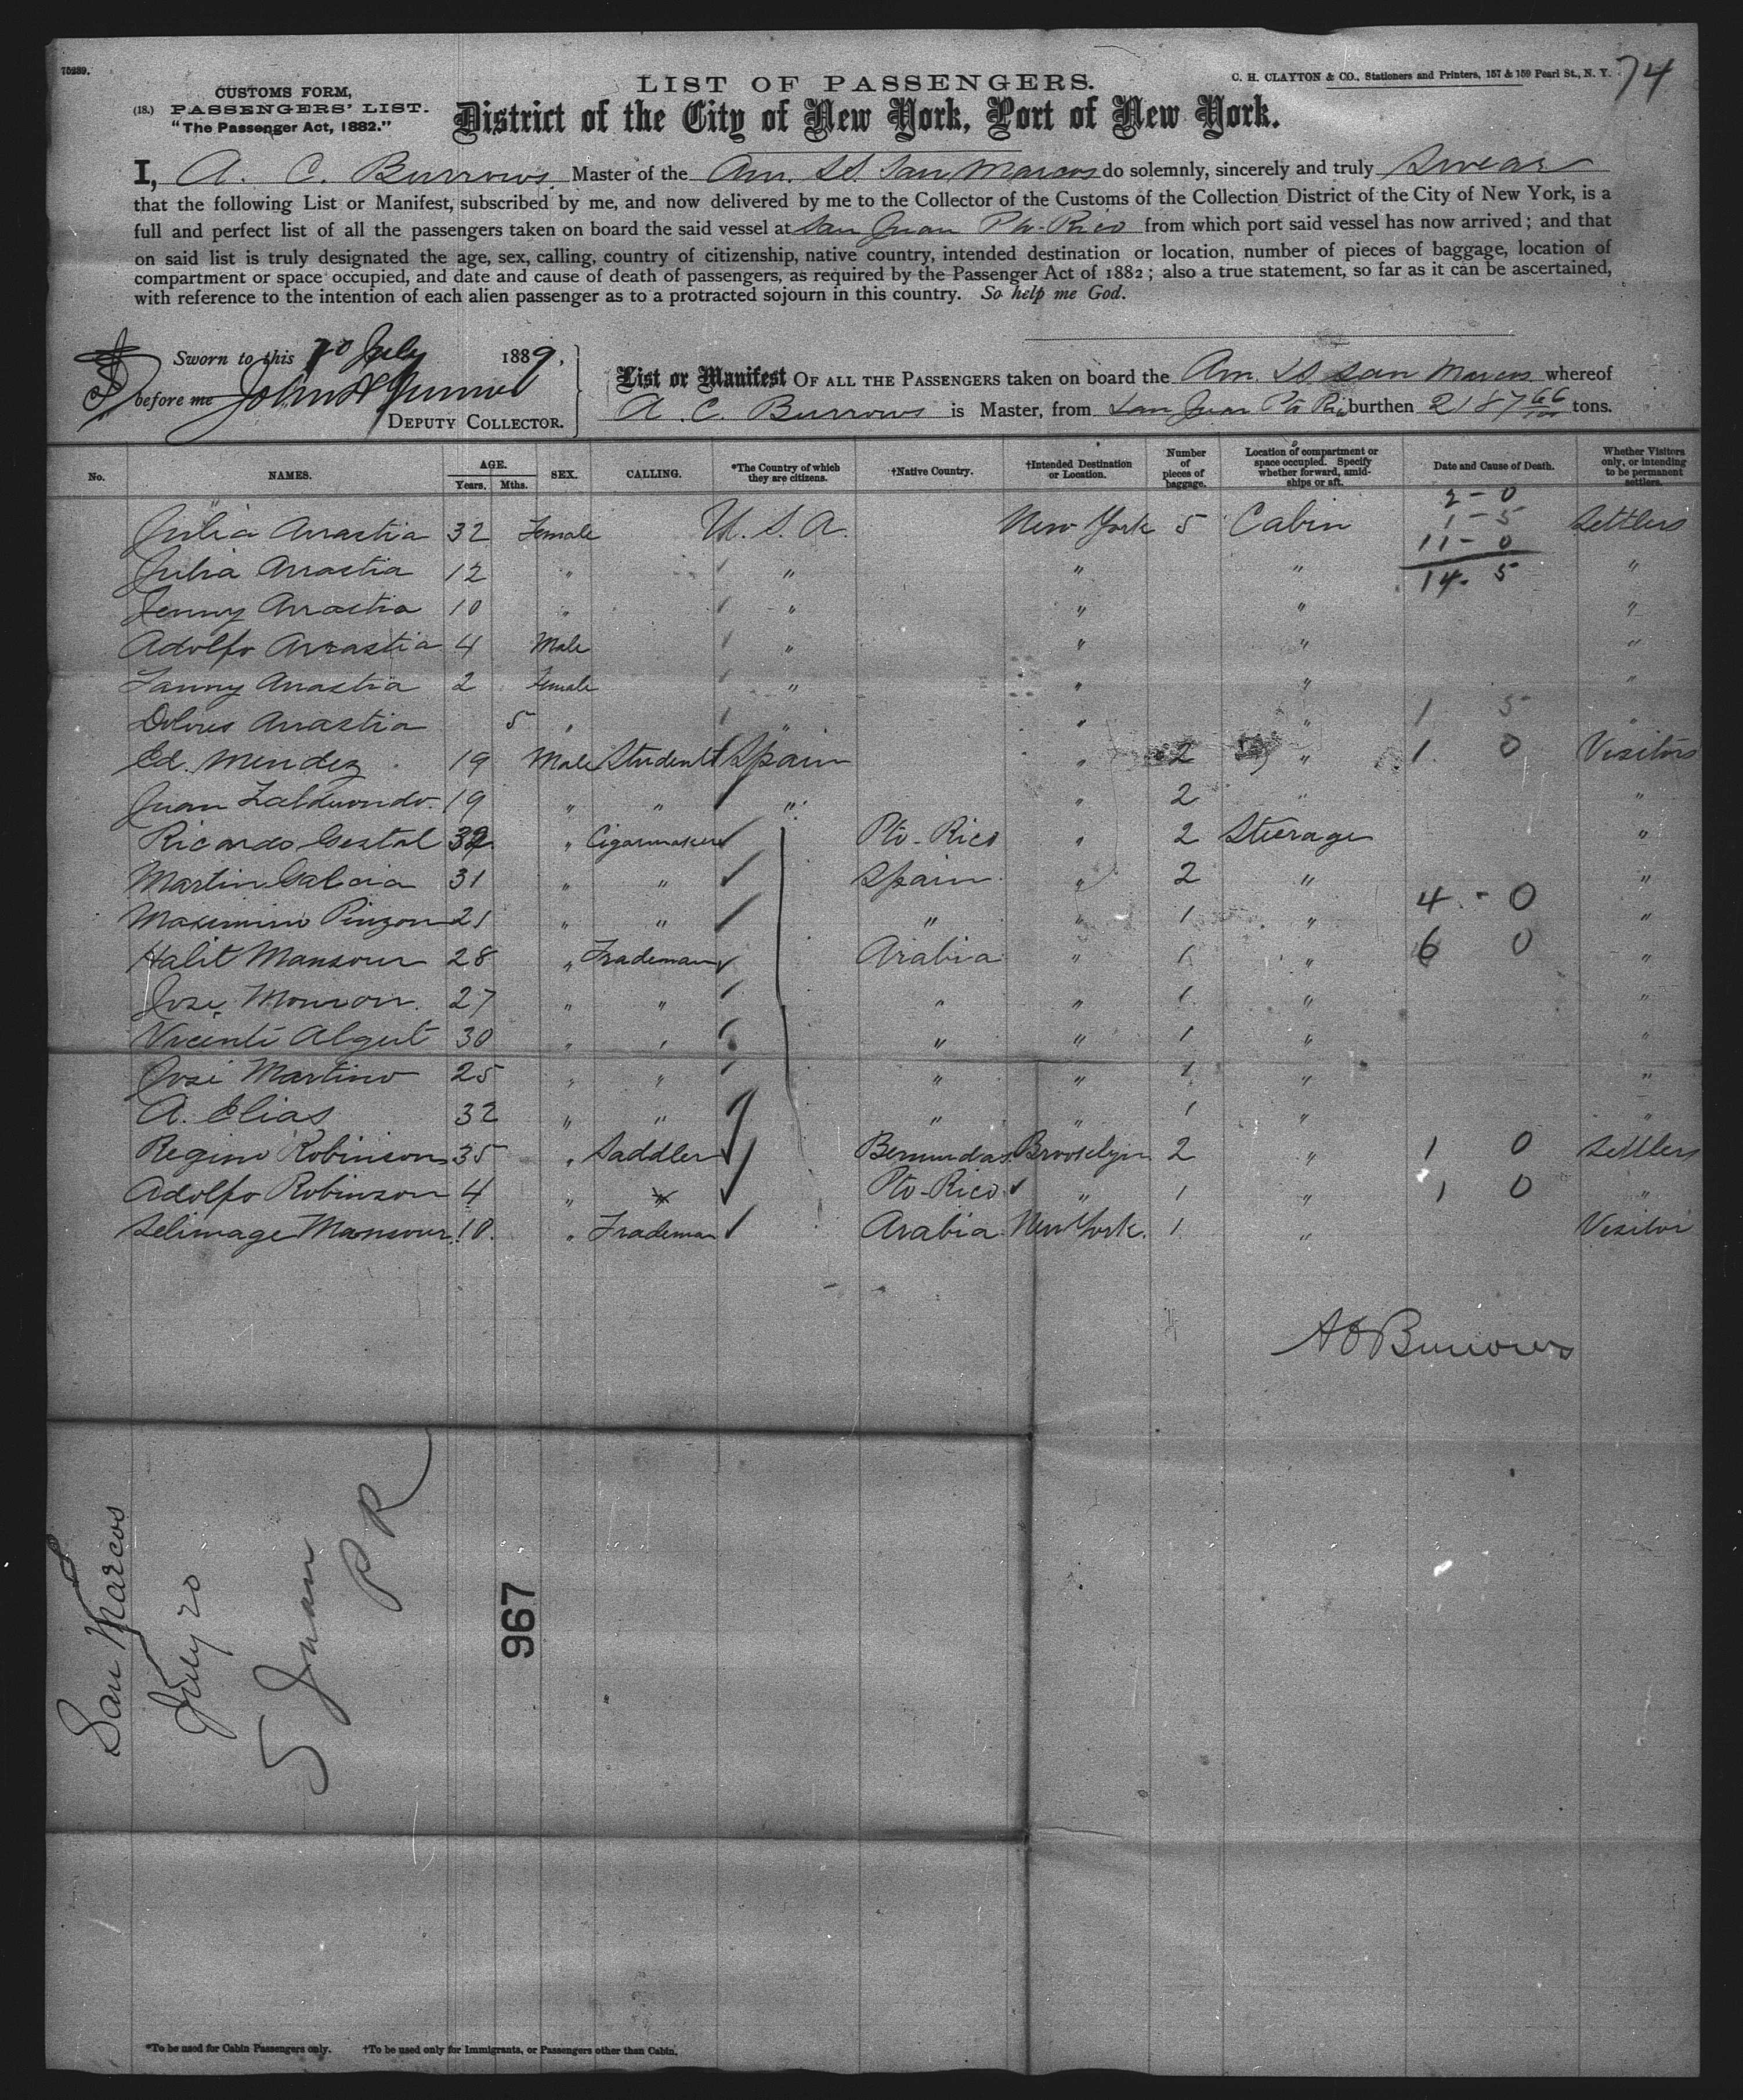 75289.
CUSTOMS FORM,
(18.) PASSENGERS' LIST.
"The Passenger Act, 1882."
LIST OF PASSENGERS.
C. H. CLAYTON & CO., Stationers and Printers, 157 & 159 Pearl St., N. Y.
74
District of the City of New York, Port of New York.
I, A. C. Burrows Master of the Am. SS. San Marcos do solemnly, sincerely and truly Swear
that the following List or Manifest, subscribed by me, and now delivered by me to the Collector of the Customs of the Collection District of the City of New York, is a
full and perfect list of all the passengers taken on board the said vessel at San Juan Pto-Rico from which port said vessel has now arrived; and that
on said list is truly designated the age, sex, calling, country of citizenship, native country, intended destination or location, number of pieces of baggage, location of
compartment or space occupied, and date and cause of death of passengers, as required by the Passenger Act of 1882; also a true statement, so far as it can be ascertained,
with reference to the intention of each alien passenger as to a protracted sojourn in this country. So help me God.
Sworn to this 20 July 1889,
before me John A
DEPUTY COLLECTOR.
List or Manifest OF ALL THE PASSENGERS taken on board the Am. SS San Marcos whereof
A. C. Burrows is Master, from San Juan Pto Rico burthen 2187 66/100 tons.
No. NAMES. AGE. Years. Mths. SEX. CALLING. *The Country of which they are citizens. †Native Country. †Intended Destination or Location. Number of pieces of baggage. Location of compartment or space occupied. Specify whether forward, amidships or aft. Date and Cause of Death. Whether Visitors only, or intending to be permanent settlers.
2 - 0
Julia Arrastia 32 Female U. S. A. New York 5 Cabin 1 - 5 Settlers
11 - 0
Julia Arrastia 12 " " " " 14 - 5 "
Jenny Arrastia 10 " " " " "
Adolfo Arrastia 4 Male " " " "
Fanny Arrastia 2 Female " " " "
Dolores Arrastia 5 " " " " 1 5 "
Ed. Mendez 19 Male Student Spain " 2 " 1 0 Visitors
Juan Zalduondo 19 " " " " 2 " "
Ricardo Gestal 32 " Cigarmaker Pto-Rico " 2 Steerage "
Martin Galcia 31 " " Spain " 2 " "
Maximino Pinzon 21 " " " " 1 " 4 - 0 "
Halit Mansour 28 " Trademan Arabia " 1 " 6 0 "
Jose 27 " " " " 1 " "
Vicente 30 " " " " 1 " "
José Martino 25 " " " " 1 " "
A. Elias 32 " " " " 1 " "
Regino Robinson 35 " Saddler Bermudas Brooklyn 2 " 1 0 Settlers
Adolfo Robinson 4 " " Pto-Rico " 1 " 1 0 "
Selimage Mansour 10 " Trademan Arabia New York 1 " Visitor
A C Burrows
San Marcos
July 20
S Juan
P R
967
*To be used for Cabin Passengers only. †To be used only for Immigrants, or Passengers other than Cabin.